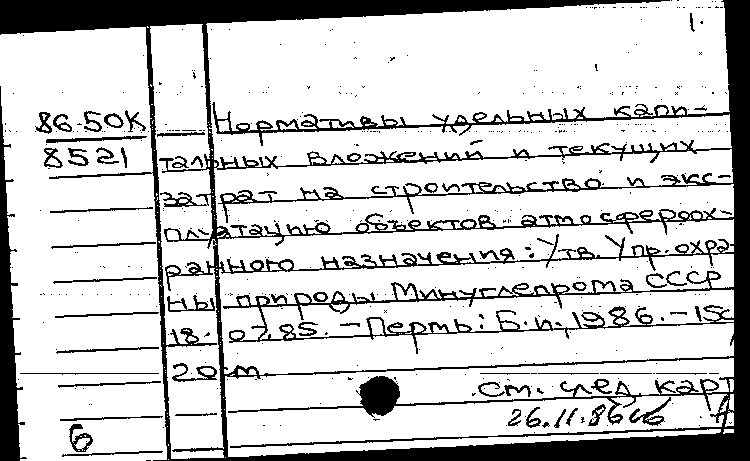 1.
86-50К
8521
Нормативы удельных капи-
тальных вложений и текущих
затрат на строительство и экс-
плуатацию объектов атмосфероох-
ранного назначения: Утв. Упр. охра-
ны природы Минуглепрома СССР
18.07.85. - Пермь: Б.и., 1986. - 15с
20 т.
См. след карт
26.11.86
6